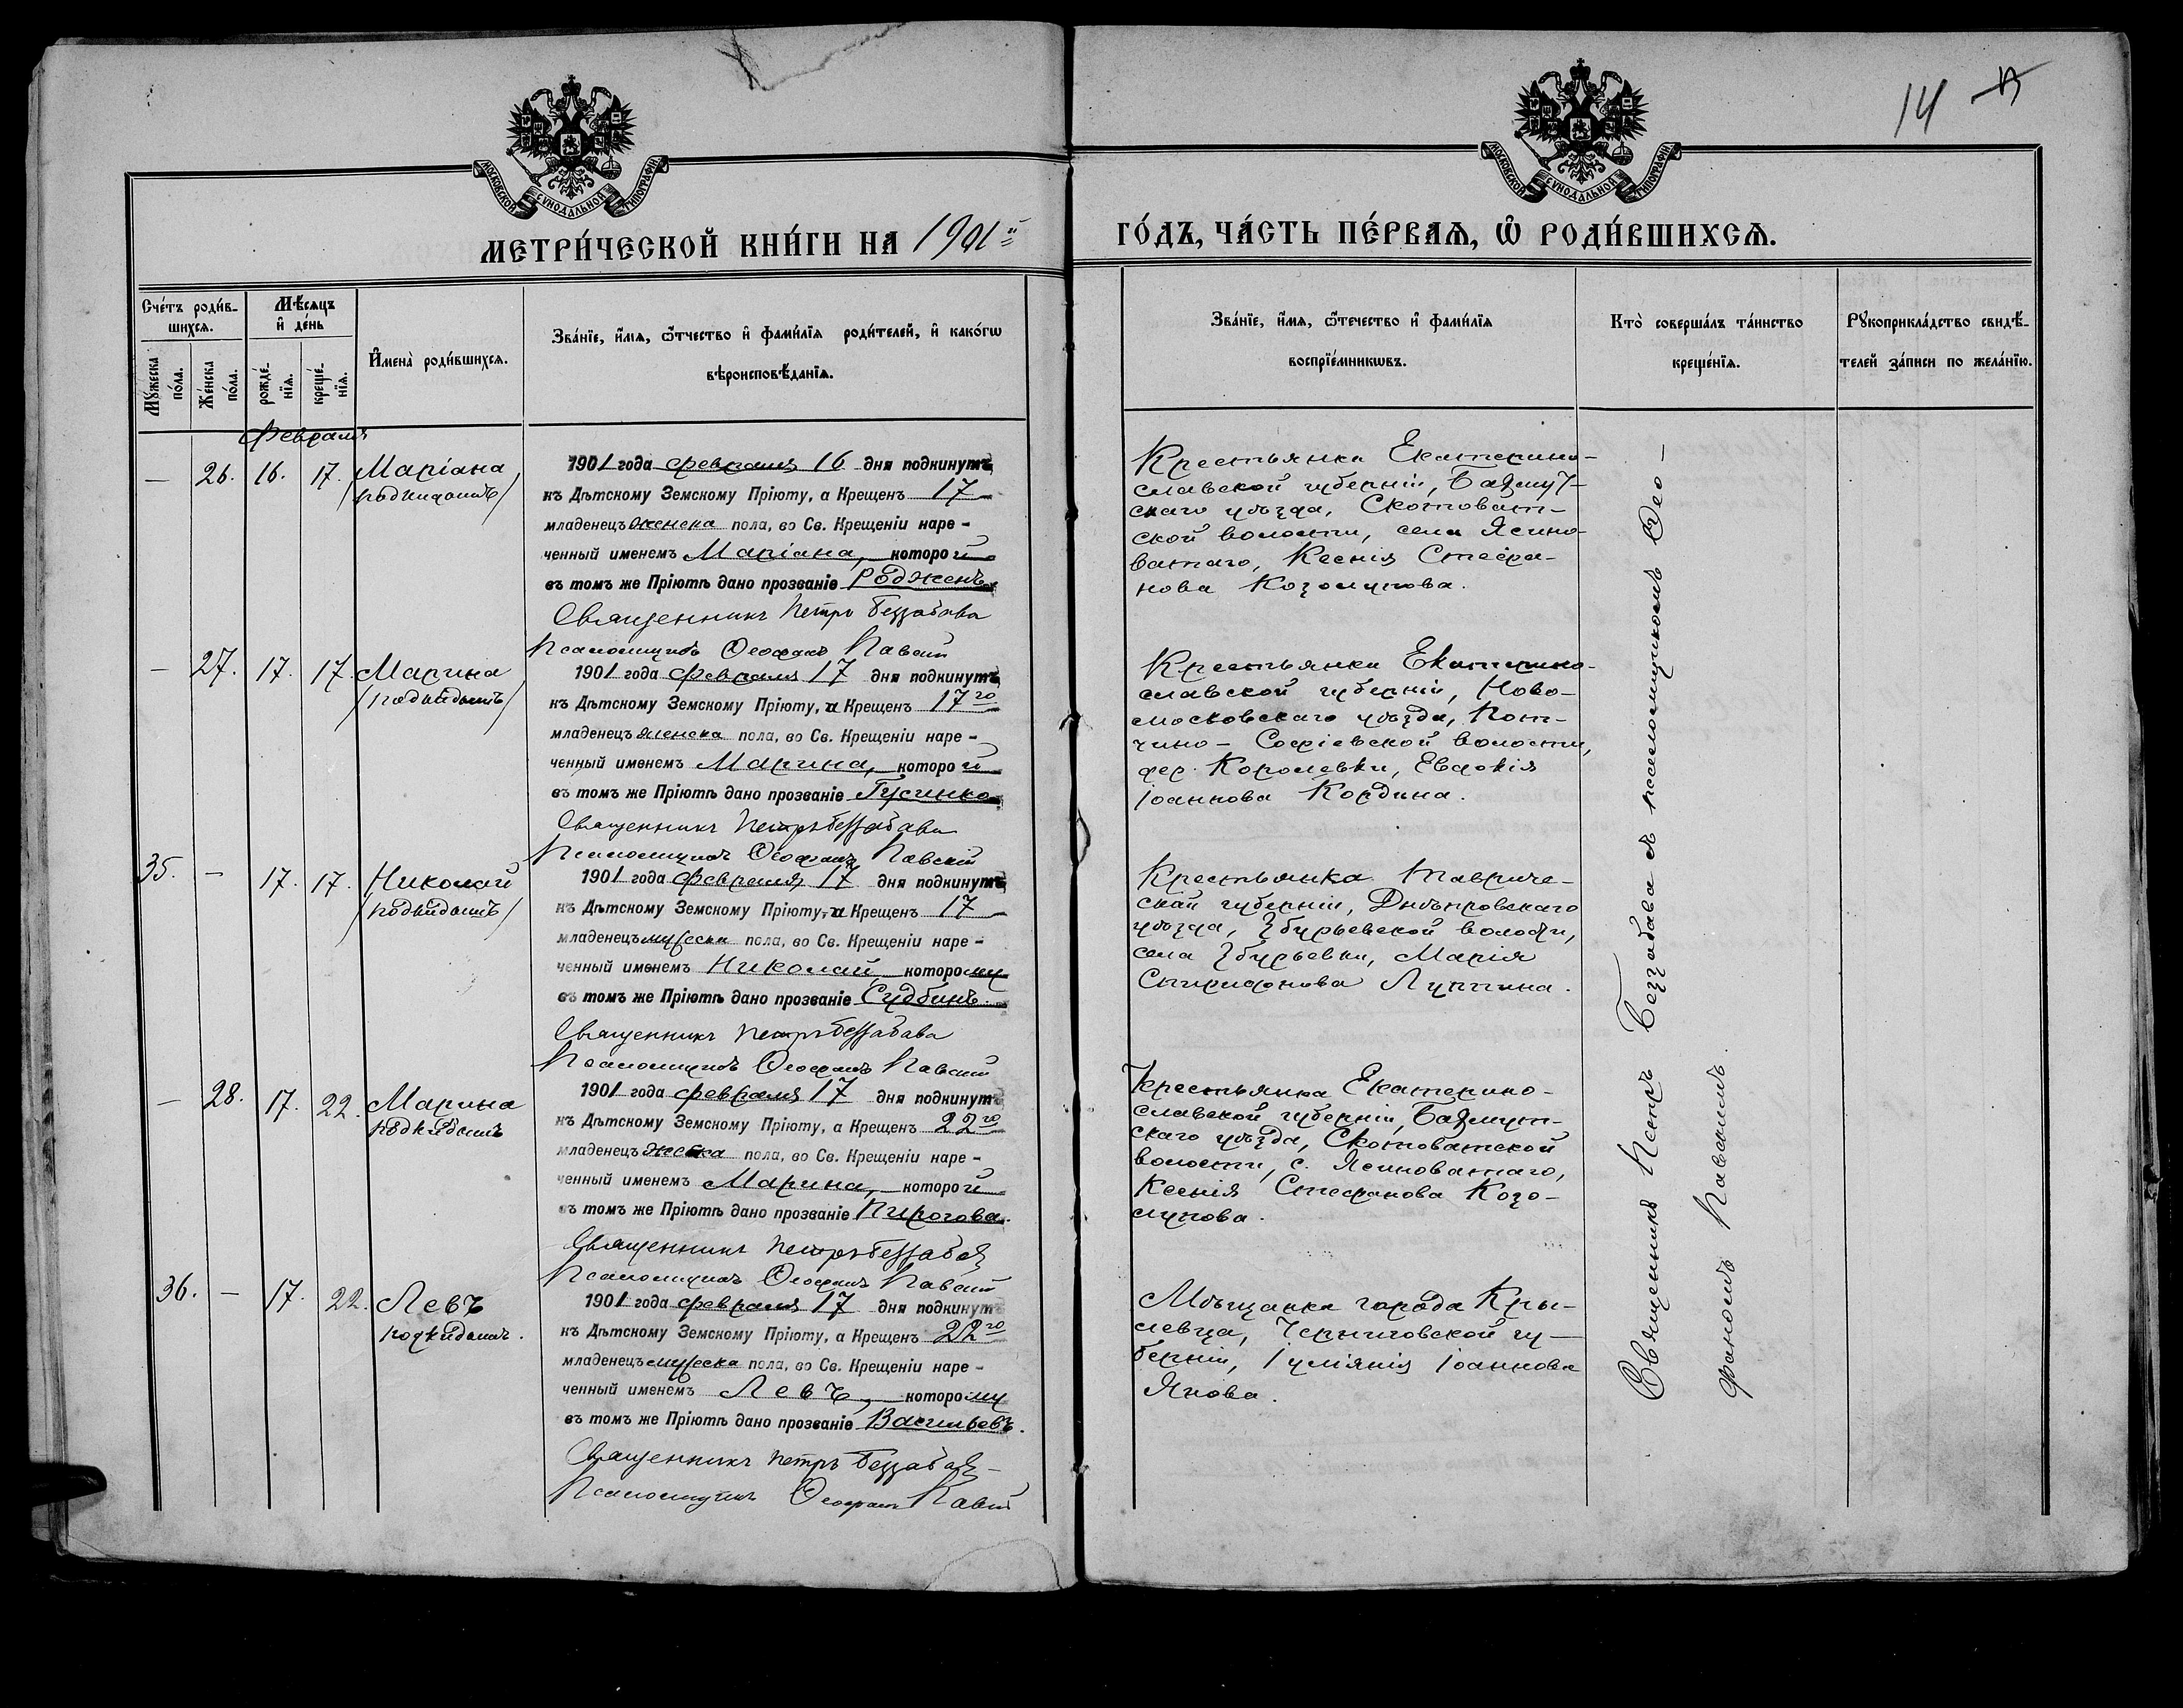 14
МОСКОВСКОЙ СѴНОДАЛЬНОЙ ТИПОГРАФІИ
МОСКОВСКОЙ СѴНОДАЛЬНОЙ ТИПОГРАФІИ
МЕТРИ́ЧЕСКОЙ КНИ́ГИ НА 1901й
ГО́ДЪ, ЧА́СТЬ ПЕ́РВАѦ, Ѽ РОДИ́ВШИХСѦ.
Сче́тъ роди́в-
шихсѧ.
Мꙋ́жеска
по́ла.
Же́нска
по́ла.
Мѣ́сѧцъ
и҆ де́нь
рожде́-
нїѧ.
креще́-
нїѧ.
И҆мена̀ роди́вшихсѧ.
Зва́нїе, и҆́мѧ, ѻ҆́тчество и҆ фами́лїѧ роди́телей, и҆ како́гѡ
вѣроисповѣ́данїѧ.
Зва́нїе, и҆́мѧ, ѻ҆́течество и҆ фами́лїѧ
воспрїе́мникѡвъ.
Кто̀ соверша́лъ та́инство
креще́нїѧ.
Рꙋкоприкла́дство свидѣ́-
телей за́писи по жела́нїю.
Февраля
— 26. 16. 17. Маріана
/подкидышъ/
1901 года февраля 16 дня подкинутъ
къ Дѣтскому Земскому Пріюту, а Крещенъ 17
младенецъ женска пола, во Св. Крещеніи наре-
ченный именемъ Маріана, которой
въ томъ же Пріютѣ дано прозваніе Родженъ
Священникъ Петръ Беззабава
Псаломщикъ Ѳеофанъ Павскій
Крестьянка Екатерино-
славской губерніи, Бахмут-
скаго уѣзда, Скотоват-
ской волости, села Ясино-
ватаго, Ксенія Стефа-
нова Козолупова.
— 27. 17. 17. Марина
/подкидышъ/
1901 года февраля 17 дня подкинутъ
къ Дѣтскому Земскому Пріюту, а Крещенъ 17го
младенецъ женска пола, во Св. Крещеніи наре-
ченный именемъ Марина, которой
въ томъ же Пріютѣ дано прозваніе Гусинко
Священникъ Петръ Беззабава
Псаломщикъ Ѳеофанъ Павскій
Крестьянка Екатерино-
славской губерніи, Ново-
московскаго уѣзда, Кот-
чино-Софіевской волости,
дер. Королевки, Евдокія
Іоаннова Кордина.
35. — 17. 17. Николай
/подкидышъ/
1901 года февраля 17 дня подкинутъ
къ Дѣтскому Земскому Пріюту, а Крещенъ 17
младенецъ мужеска пола, во Св. Крещеніи наре-
ченный именемъ Николай, которому
въ томъ же Пріютѣ дано прозваніе Судбинъ.
Священникъ Петръ Беззабава
Псаломщикъ Ѳеофанъ Павскій
Крестьянка Тавриче-
ской губерніи, Днѣпровскаго
уѣзда, Збурьевской волости,
села Збурьевки, Марія
Спиридонова Луппина.
— 28. 17. 22. Марина
подкидышъ
1901 года февраля 17 дня подкинутъ
къ Дѣтскому Земскому Пріюту, а Крещенъ 22го
младенецъ женска пола, во Св. Крещеніи наре-
ченный именемъ Марина, которой
въ томъ же Пріютѣ дано прозваніе Пирогова.
Священникъ Петръ Беззабава
Псаломщикъ Ѳеофанъ Павскій
Крестьянка Екатерино-
славской губерніи, Бахмут-
скаго уѣзда, Скотоватской
волости, с. Ясиноватаго,
Ксенія Стефанова Козо-
лупова.
36. — 17. 22. Левъ
подкидышъ.
1901 года февраля 17 дня подкинутъ
къ Дѣтскому Земскому Пріюту, а Крещенъ 22го
младенецъ мужеска пола, во Св. Крещеніи наре-
ченный именемъ Левъ, которому
въ томъ же Пріютѣ дано прозваніе Васильевъ.
Священникъ Петръ Беззабава
Псаломщикъ Ѳеофанъ Павскій
Мѣщанка города Кро-
левца, Черниговской гу-
берніи, Іуліянія Іоаннова
Янова.
Священникъ Петръ Беззабава съ псаломщикомъ Ѳео-
фаномъ Павскимъ.